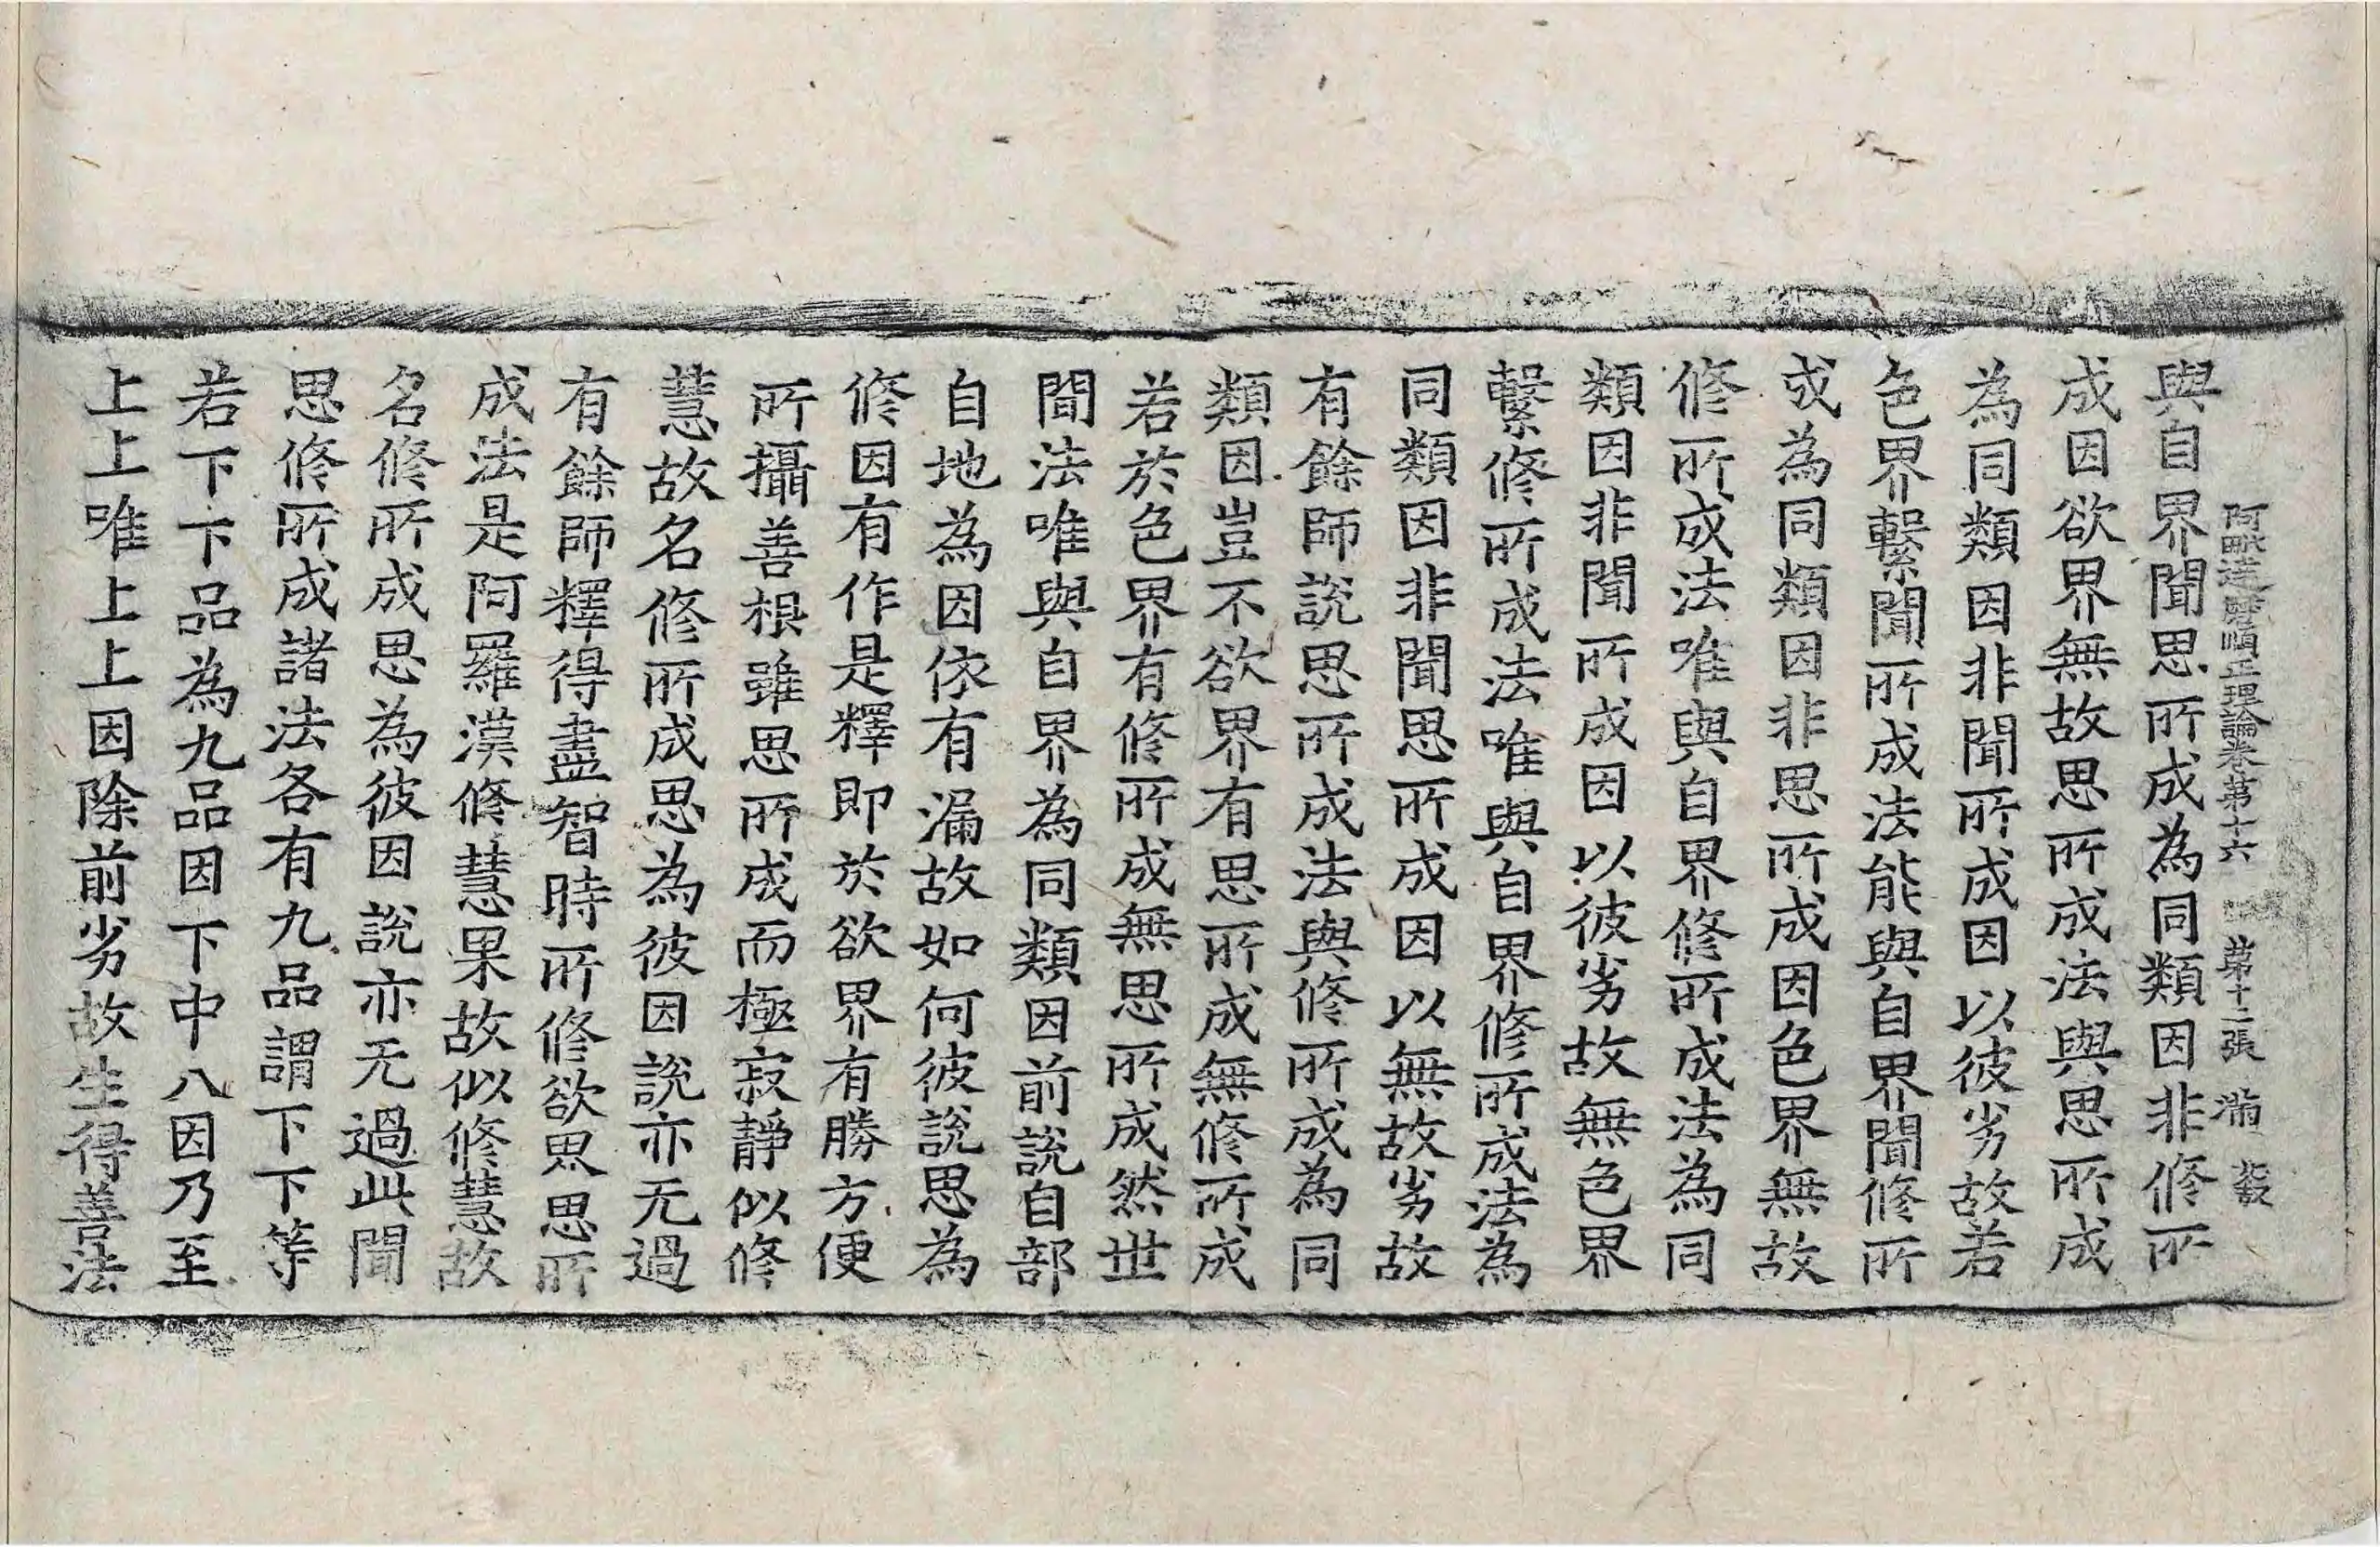 阿毗達磨順正理論卷第十六 第十二張 滿
與自界聞思所成為同類因非修所
成因欲界無故思所成法與思所成
為同類因非聞所成因以彼劣故若
色界繫聞所成法能與自界聞修所
成為同類因非思所成因色界無故
修所成法唯與自界修所成法為同
類因非聞所成因以彼劣故無色界
繫修所成法唯與自界修所成法為
同類因非聞思所成因以無故劣故
有餘師說思所成法與修所成為同
類因豈不欲界有思所成無修所成
若於色界有修所成無思所成然世
聞法唯與自界為同類因前說自部
自地為因依有漏故如何彼說思為
修因有作是釋即於欲界有勝方便
所攝善根雖思所成而極寂靜似修
慧故名修所成思為彼因說亦无過
有餘師釋得盡智時所修欲界思所
成法是阿羅漢修慧果故似修慧故
名修所成思為彼因說亦无過此聞
思修所成諸法各有九品謂下下等
若下下品為九品因下中八因乃至
上上唯上上因除前劣故生得善法